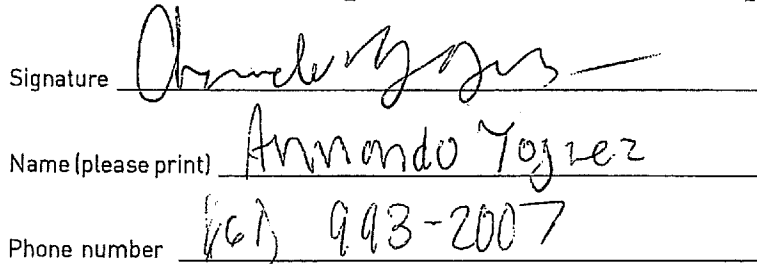 Signature
Name (please print) Armando Yognez
Phone number 993-2007